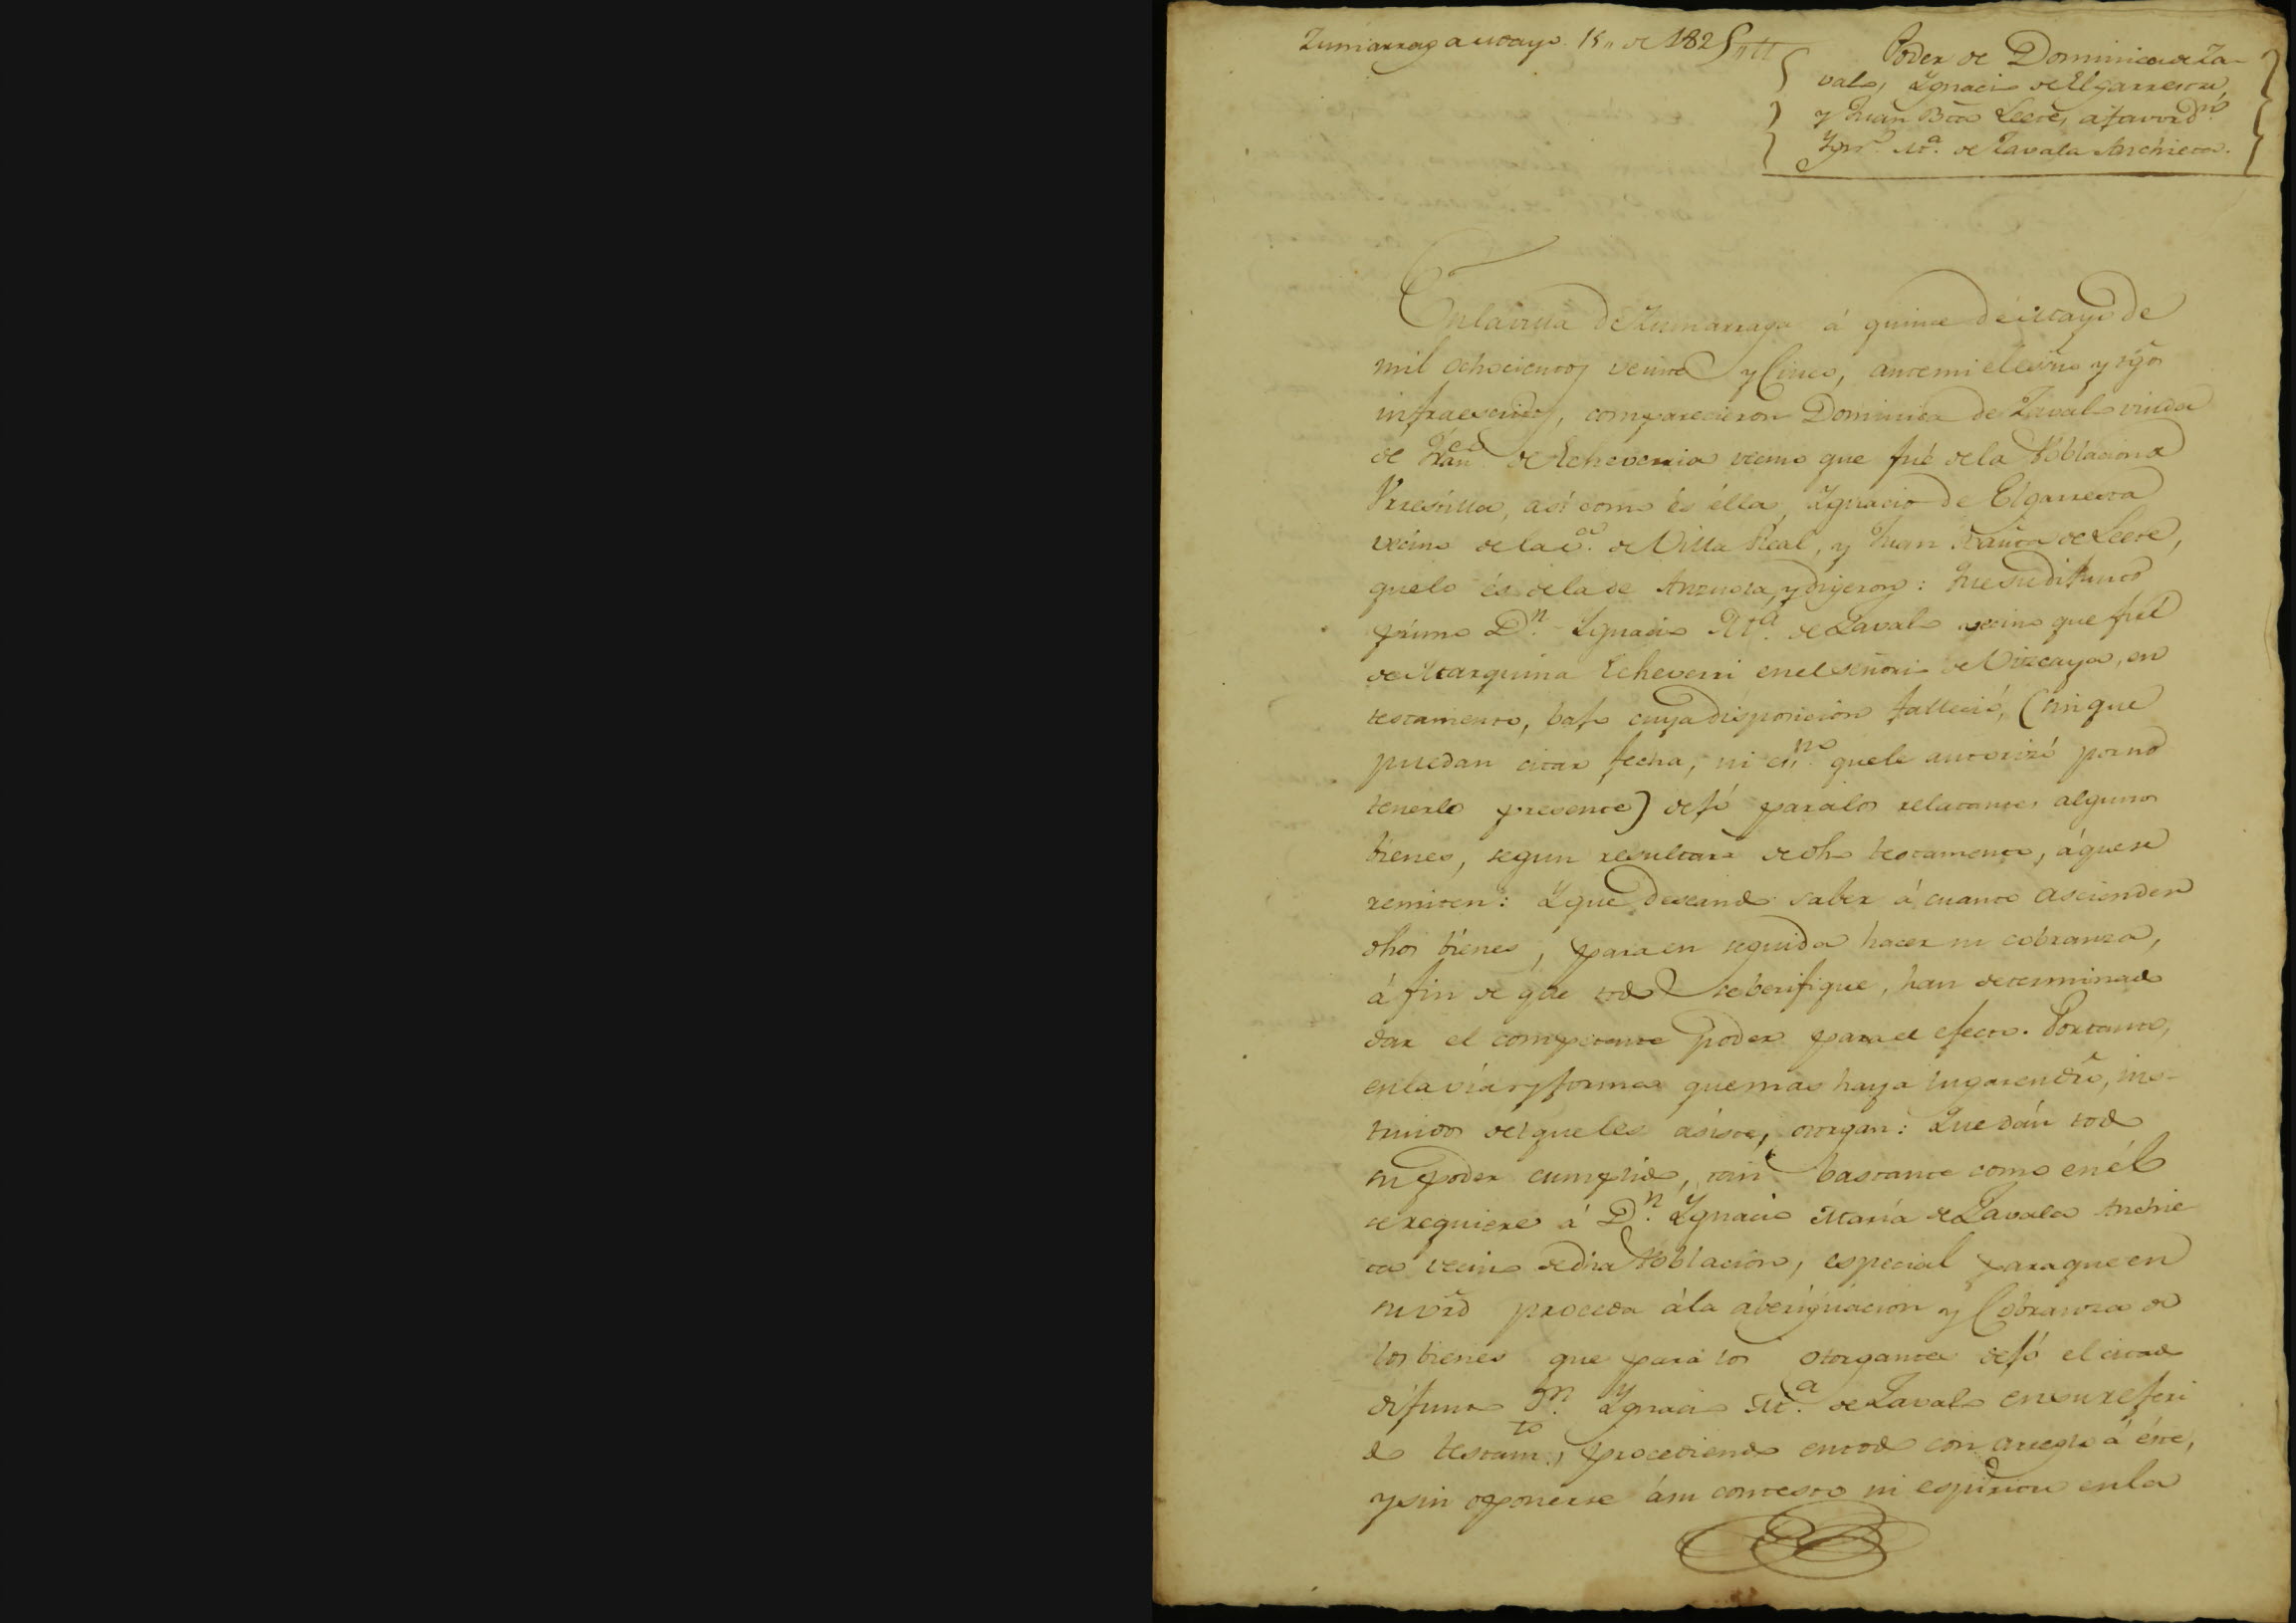 Zumarraga Mayo 15,, de 1825,,
Poder de Dominica de Za-
vala, Ygnacio de Elgarresta,
y Juan Bta Leete, a favor de Dn.
Ygno. Ma. de Zavala Anchieta.
En la villa de Zumarraga á quince de Mayo de
mil ochocientos veinte y Cinco, ante mi el esño y tgos
infraescritos, comparecieron Dominica de Zavala viuda
de Franco. de Echeverria vecino que fué de la Poblacion de
Vrrestilla, así como és élla, Ygnacio de Elgarresta
vecino de la de Villa Real, y Juan Bauta de Leete,
que lo és de la de Anzuola, y dijeron: Que su difunto
primo Dn. Ygnacio Ma. de Zavala vecino que fué
de Marquina Echeverri en el señorio de Vizcaya, en
testamento, bajo cuya disposicion falleció, (sin que
puedan citar fecha, ni esno. que le autorizó por no
tenerlo presente) dejó para los relatantes algunos
bienes, segun resultara de dho testamento, á que se
remiten: Y que deseando saber á cuanto ascienden
dhos bienes, para en seguida hacer su cobranza,
á fin de que todo se berifique, han determinado
dar el competente poder para el efecto. Por tanto,
en la vía y forma que mas haya lugar en dro, ins-
truidos del que les asiste, otorgan: Que dán todo
su poder cumplido, tan bastante como en él
se requiere á Dn. Ygnacio María de Zavala Anchie
ta vecino de dha Poblacion, especial para que en
su vrd proceda á la aberiguacion y Cobranza de
los bienes que para los otorgantes dejó el citado
difunto Dn. Ygnacio Ma. de Zavala en su referi
do testamto., procediendo en todo con arreglo á éste,
y sin oponerse á su contesto ni espiritu en la